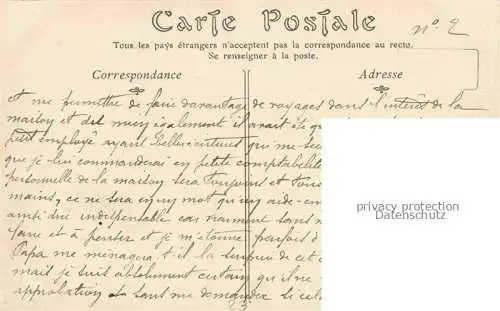 Carte Postale
n° 2
Tous les pays étrangers n'acceptent pas la correspondance au recto.
Se renseigner à la poste.
Correspondance
Adresse
et me permettre de faire davantage de voyages dans l'intérêt de la
maison et dit mieux également il avait été
petit employé ayant belle écriture qui me
que je lui commanderai en petite comptabilité
personnelle de la maison sera toujours et tous
mains, ce ne sera en un mot qu'un aide
indispensable car vraiment sans
faire et à penser et je m'étonne parfois
Papa me ménagera t'il la surprise de cet
mais je suis absolument certain qu'il ne
approbation et sans me demander si cela
privacy protection
Datenschutz